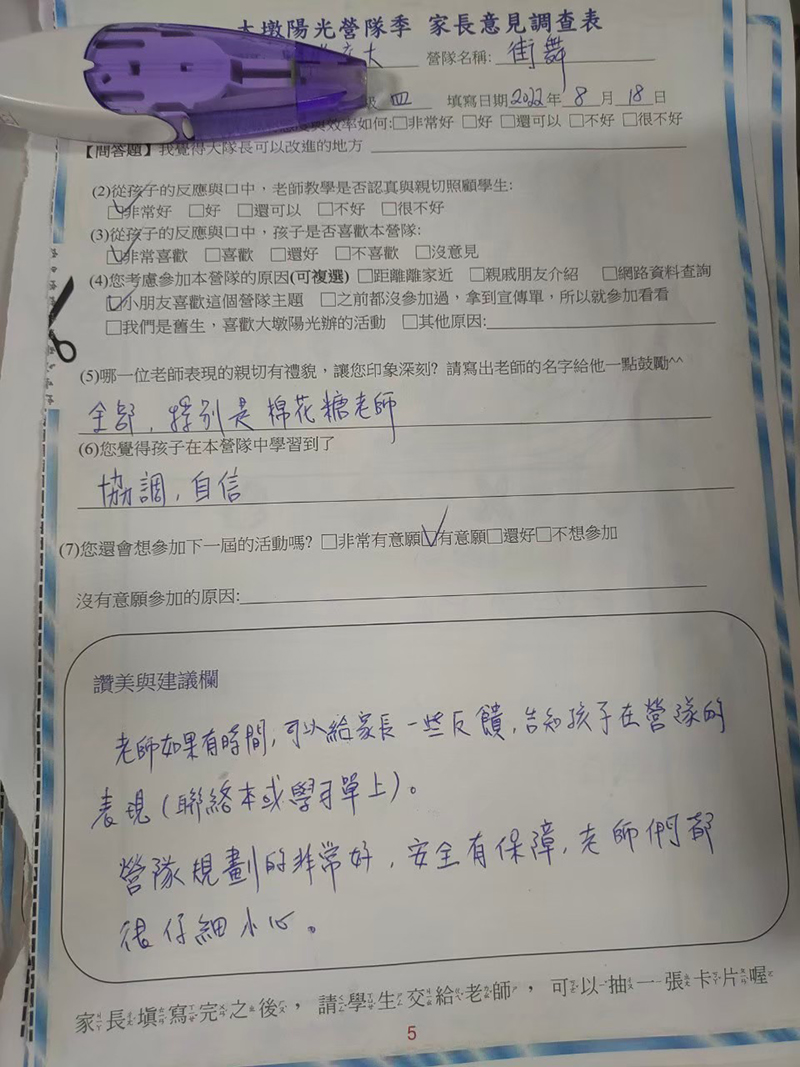 大墩陽光營隊季 家長意見調查表
大 營隊名稱: 街舞
四 填寫日期2022年 8 月 18 日
效率如何:□非常好 □好 □還可以 □不好 □很不好
【問答題】我覺得大隊長可以改進的地方
(2)從孩子的反應與口中，老師教學是否認真與親切照顧學生:
□非常好 □好 □還可以 □不好 □很不好
(3)從孩子的反應與口中，孩子是否喜歡本營隊:
□非常喜歡 □喜歡 □還好 □不喜歡 □沒意見
(4)您考慮參加本營隊的原因(可複選) □距離離家近 □親戚朋友介紹 □網路資料查詢
□小朋友喜歡這個營隊主題 □之前都沒參加過，拿到宣傳單，所以就參加看看
□我們是舊生，喜歡大墩陽光辦的活動 □其他原因:
(5)哪一位老師表現的親切有禮貌，讓您印象深刻? 請寫出老師的名字給他一點鼓勵^^
全部，特別是棉花糖老師
(6)您覺得孩子在本營隊中學習到了
協調，自信
(7)您還會想參加下一屆的活動嗎? □非常有意願□有意願□還好□不想參加
沒有意願參加的原因:
讚美與建議欄
老師如果有時間，可以給家長一些反饋，告知孩子在營隊的
表現（聯絡本或學習單上）。
營隊規劃的非常好，安全有保障，老師們都
很仔細小心。
家長填寫完之後，請學生交給老師，可以抽一張卡片喔
5